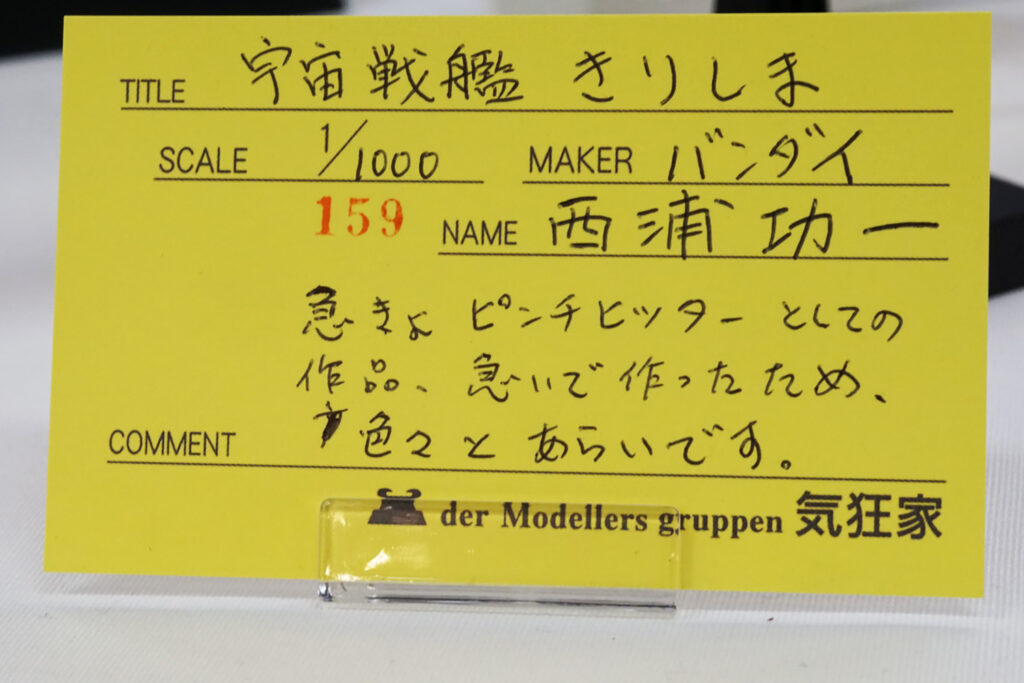 TITLE 宇宙戦艦 きりしま
SCALE 1/1000 MAKER バンダイ
159 NAME 西浦 功一
急きょ ピンチヒッターとしての
作品、急いで作ったため、
COMMENT 色々とあらいです。
der Modellers gruppen 気狂家